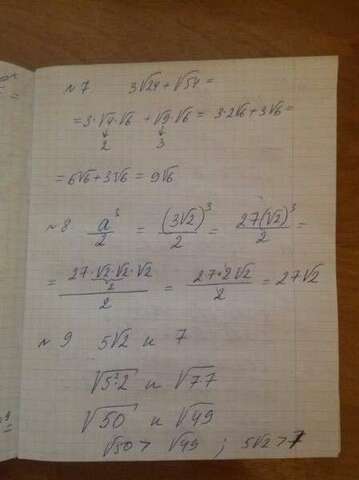 № 7 3√24 + √54 =
= 3·√4·√6 + √9·√6 = 3·2√6 + 3√6 =
↓ ↓
2 3
= 6√6 + 3√6 = 9√6
№ 8 a³/2 = (3√2)³/2 = 27(√2)³/2 =
= 27·√2·√2·√2/2 = 27·2√2/2 = 27√2
2
№ 9 5√2 и 7
√5²·2 и √77
√50 и √49
√50 > √49 ; 5√2 > 7